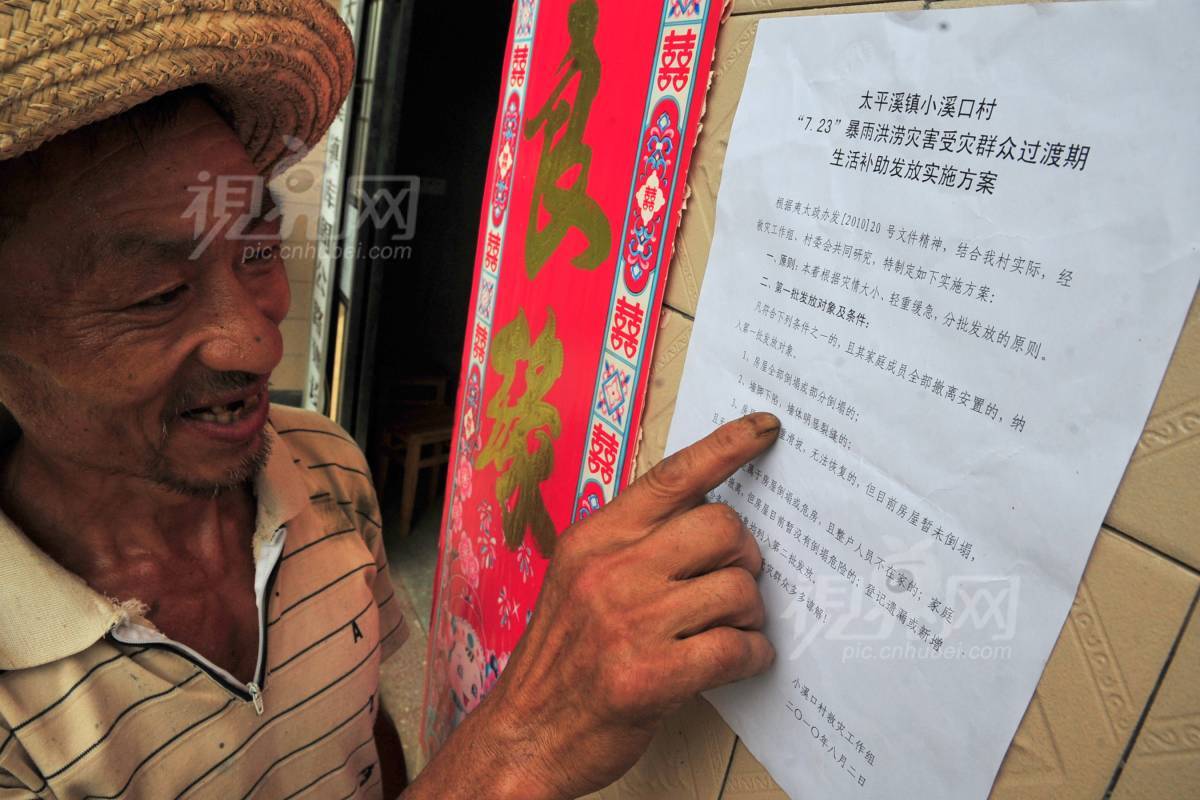 太平溪镇小溪口村
“7.23”暴雨洪涝灾害受灾群众过渡期
生活补助发放实施方案
根据夷太政办发[2010]20 号文件精神，结合我村实际，经
救灾工作组、村委会共同研究，特制定如下实施方案：
一、原则：本着根据灾情大小、轻重缓急，分批发放的原则。
二、第一批发放对象及条件：
凡符合下列条件之一的，且其家庭成员全部撤离安置的，纳
入第一批发放对象。
1、房屋全部倒塌或部分倒塌的；
2、墙脚下陷，墙体明显裂缝的；
3、房屋 重滑坡，无法恢复的，但目前房屋暂未倒塌，
属于房屋倒塌或危房，且整户人员不在家的；家庭
撤离，但房屋目前暂没有倒塌危险的；登记遗漏或新增
对象均列入第二批发放
灾群众多多谅解！
小溪口村救灾工作组
二〇一〇年八月二日
良
缘
囍
視界网
pic.cnhubei.com
視界网
pic.cnhubei.com